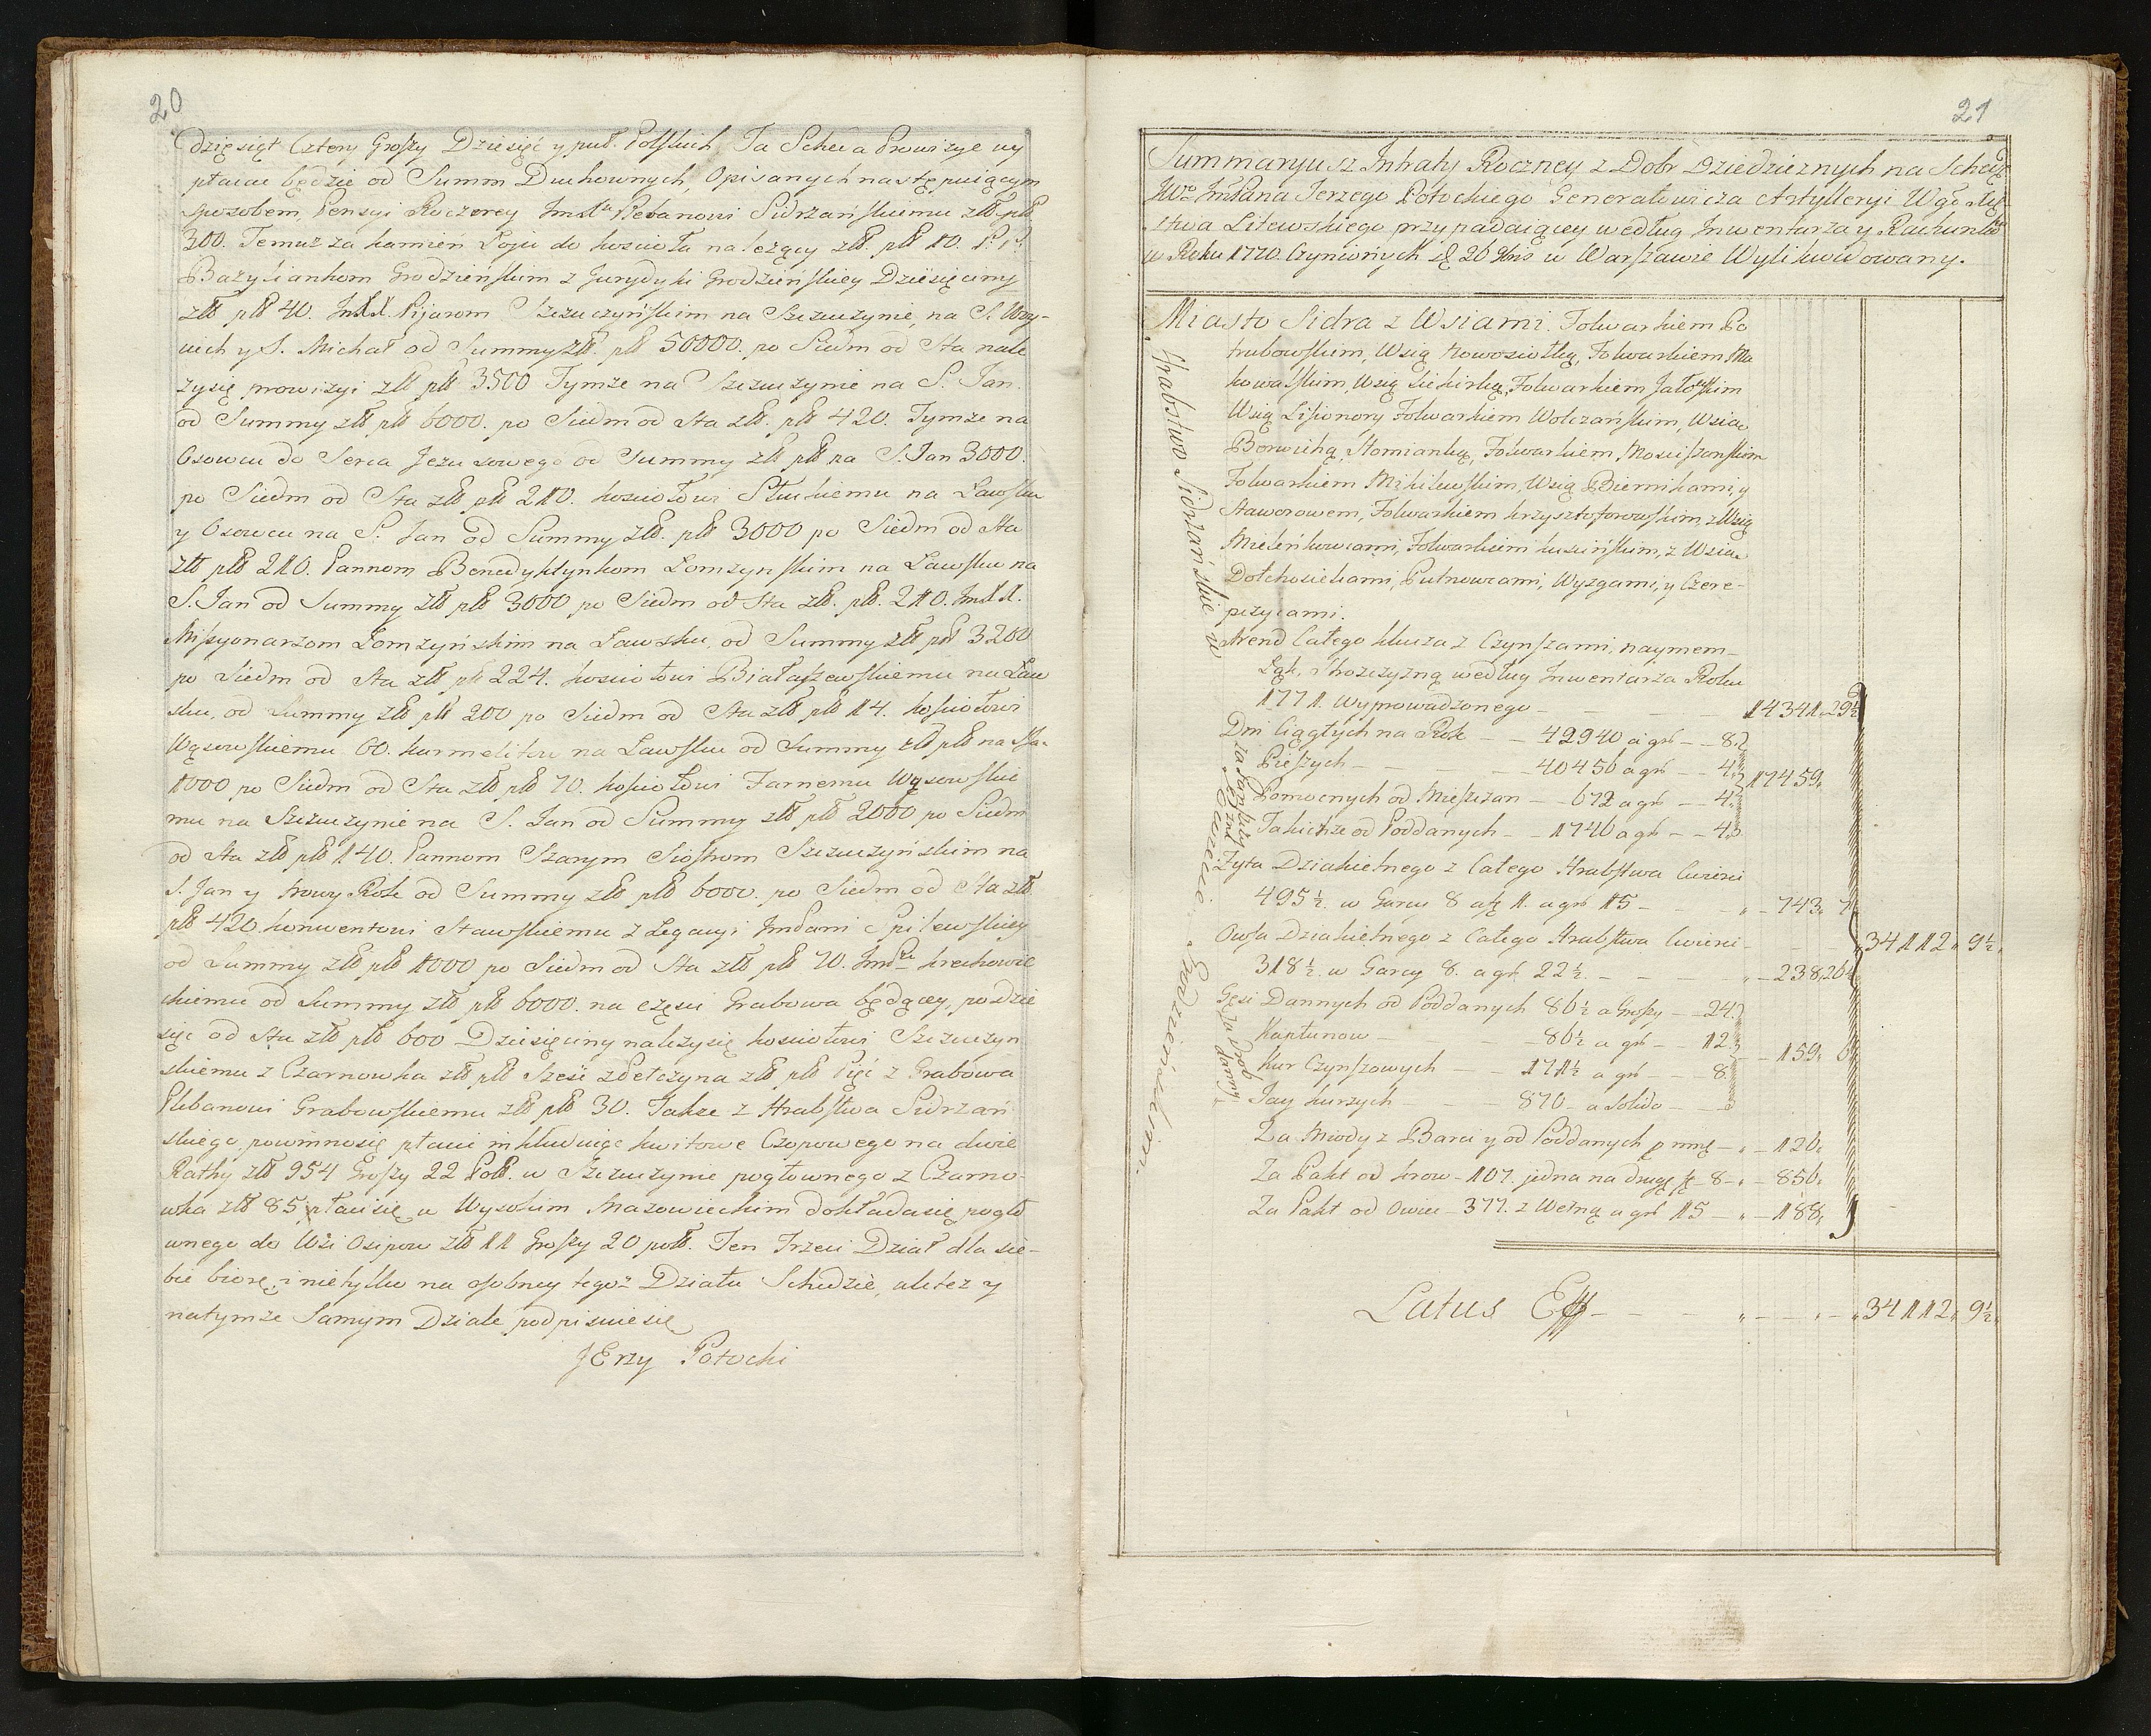 20
dzięsiąt Cztery Groszy Dziesięć y puł. Polskich. Ta Scheda Prowizye wy
płacać będzie od Summ Duchownych, Opisanych następuiącym
sposobem, Pensyi Roczerey Plebanowi Sidrzańskiemu złł plł
300. Temuż za kamień Łoju do kościoła należący złł. plł 10.
Bazyliankom Grodzieńskim z Jurydyki Grodzieńskiey Dziesięciny
złł plł 40. Pijarom Szczuczyńskim na Szczuczynie, na S.
y S. Michał od Summy złł. plł 50000. po Siedm od Sta nale
żysię prowizyi złł plł 3500 Tymże na Szczuczynie na S. Jan.
od Summy złł plł 6000. po Siedm od Sta złł. plł 420. Tymże na
Osowcu do Serca Jezusowego od Summy złł plł na S. Jan 3000.
po Siedm od Sta złł plł 210. kościołowi Słuckiemu na Ławsku
y Osowcu na S. Jan od Summy złł. plł 3000 po Siedm od Sta
złł plł 210. Pannom Benedyktynkom Łomżynskim na Ławsku na
S. Jan od Summy złł plł 3000 po Siedm od Sta złł. plł. 210.
Missyonarzom Łomżyńskim na Ławsku, od Summy złł plł 3200
po Siedm od Sta złł plł 224. kościołowi Białaszewskiemu na Ław
sku, od Summy złł plł 200 po Siedm od Sta złł plł 14. kościołowi
Wąsowskiemu OO. karmelitow na Ławsku od Summy złł plł na
1000 po Siedm od Sta złł plł 70. kościołowi Farnemu Wąsowskie
mu na Szczuczynie na S. Jan od Summy złł plł 2000 po Siedm
od Sta złł plł 140. Pannom Szarym Siostrom Szczuczyńskim na
S. Jan y Nowy Rok od Summy złł plł 6000. po Siedm od Sta złł
plł 420. konwentowi Stawskiemu z Legacyi Spilewskiey
od Summy złł plł 1000 po Siedm od Sta złł plł 70. krechowic
kiemu od Summy złł plł 6000. na części Grabowa będącey, po dzie
sięc od Sta złł plł 600 Dziesięciny należysię kościołowi Szczuczyn
skiemu z Czarnowka złł plł Sześć złł plł Pięć z Grabowa
Plebanowi Grabowskiemu złł plł 30. Także z Hrabstwa Sidrzań
skiego, powinnosię płacić inkluduiąc kwitowe Czopowego na dwie
Rathy złł 954 Groszy 22 Poll. w Szczuczynie pogłownego z Czarno-
wka złł 85 płacisię w Wysokim Mazowieckim dokładasię pogło
wnego do Wsi Osipow złł 11 Groszy 20 poll. Ten Trzeci Dział dla sie-
bie biorę, i nietylko na osobney tegoż Działu Schedzie, aletez y
natymże Samym Dziale podpisuiesię
JErzy Potocki
21
Summaryusz Intraty Roczney z Dobr Dziedzicznych na Schedę
JWo ImPana Jerzego Potockiego Generałowicza Artylleryi Wgo Xię
stwa Litewskiego przypadaiącey według Inwentarza y Rachunków
w Roku 1770. Czynionych d 26 Xbris w Warszawie Wylikwidowany.
Hrabstwo Sidrzańskie w Powiecie Grodzieńskim.
Miasto Sidra z Wsiami. Folwarkiem Po
trubowskim, Wsią Nowosiołką, Folwarkiem Ma
kowalskim, Wsią Siekirką, Folwarkiem Jałowskim
Wsią Folwarkiem Wolczańskim, Wsia
Borwichą, Słomianką, Folwarkiem
Folwarkiem Mikilewskim, Wsią Biernikami, y
Staworowem, Folwarkiem krzysztoforowskim, z Wsią
Mieleńkowcami, Folwarkiem z Wsia
Putnowcami, Wyzgami, y Czere-
pizycami.
Arend Całego klucza z Czynszami, naymem
Łąk, Skozczyzną według Inwentarza Roku
1771. wyprowadzonego — — — 14341. 29½
Dni Ciągłych na Rok — 42940 a gr — 8.
Pieszych — — — 40456 a gr — 4.
17459.
Pomocnych od Mieszczan — 672 a gr — 4.
Takichże od Poddanych — 1746 a gr — 4.
Żyta Dziakielnego z Całego Hrabstwa Cwierci
495½. w Garcy 8 a 1. a gr 15 — — 743. 7½
Owsa Dziakielnego z Całego Hrabstwa Cwierci — — 34112. 9½.
318½. w Garcy 8. a gr 22½. — — 238. 26
Gęsi Dannych od Poddanych 86½ a Groszy — 24.
Kapłunow — — 86½ a gr — 12.
159. 6
Kur Czynszowych — 171½ a gr — 8.
Jay kurzych — — 870 a Solido —
Za Miody z Barci y od Poddanych — 126.
Za Pakt od krow — 107. jedna na drugę 8 — 856.
Za Pakt od Owiec — 377. z Wełną a gr 15 — 188.
Latus Eff — — — 34112. 9½.